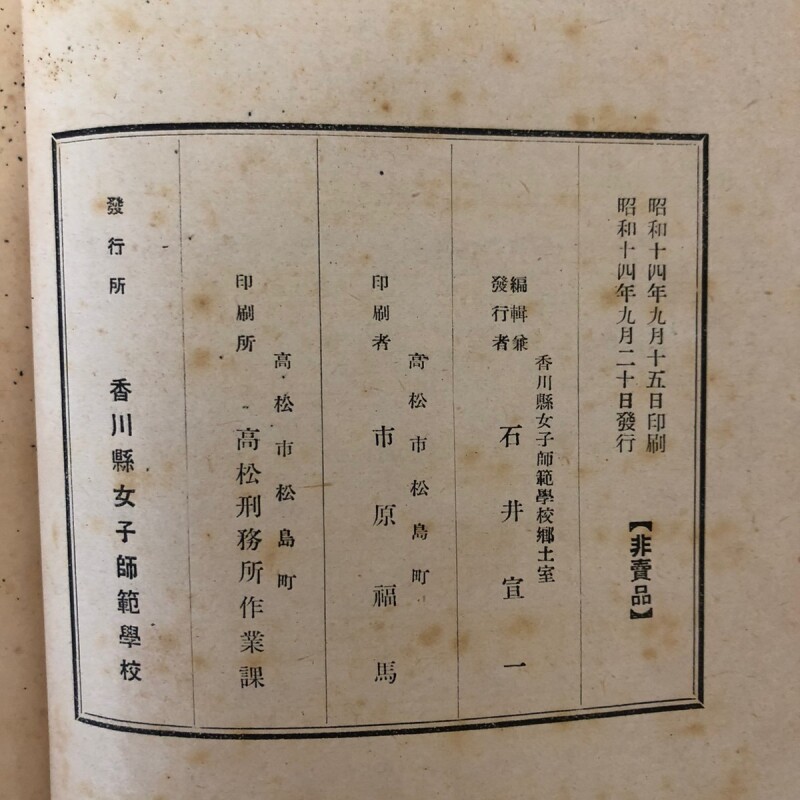 昭和十四年九月十五日印刷
昭和十四年九月二十日發行
【非賣品】
編輯兼
發行者
香川縣女子師範學校鄉土室
石井宣一
高松市松島町
印刷者
市原福馬
高松市松島町
印刷所
高松刑務所作業課
發行所
香川縣女子師範學校